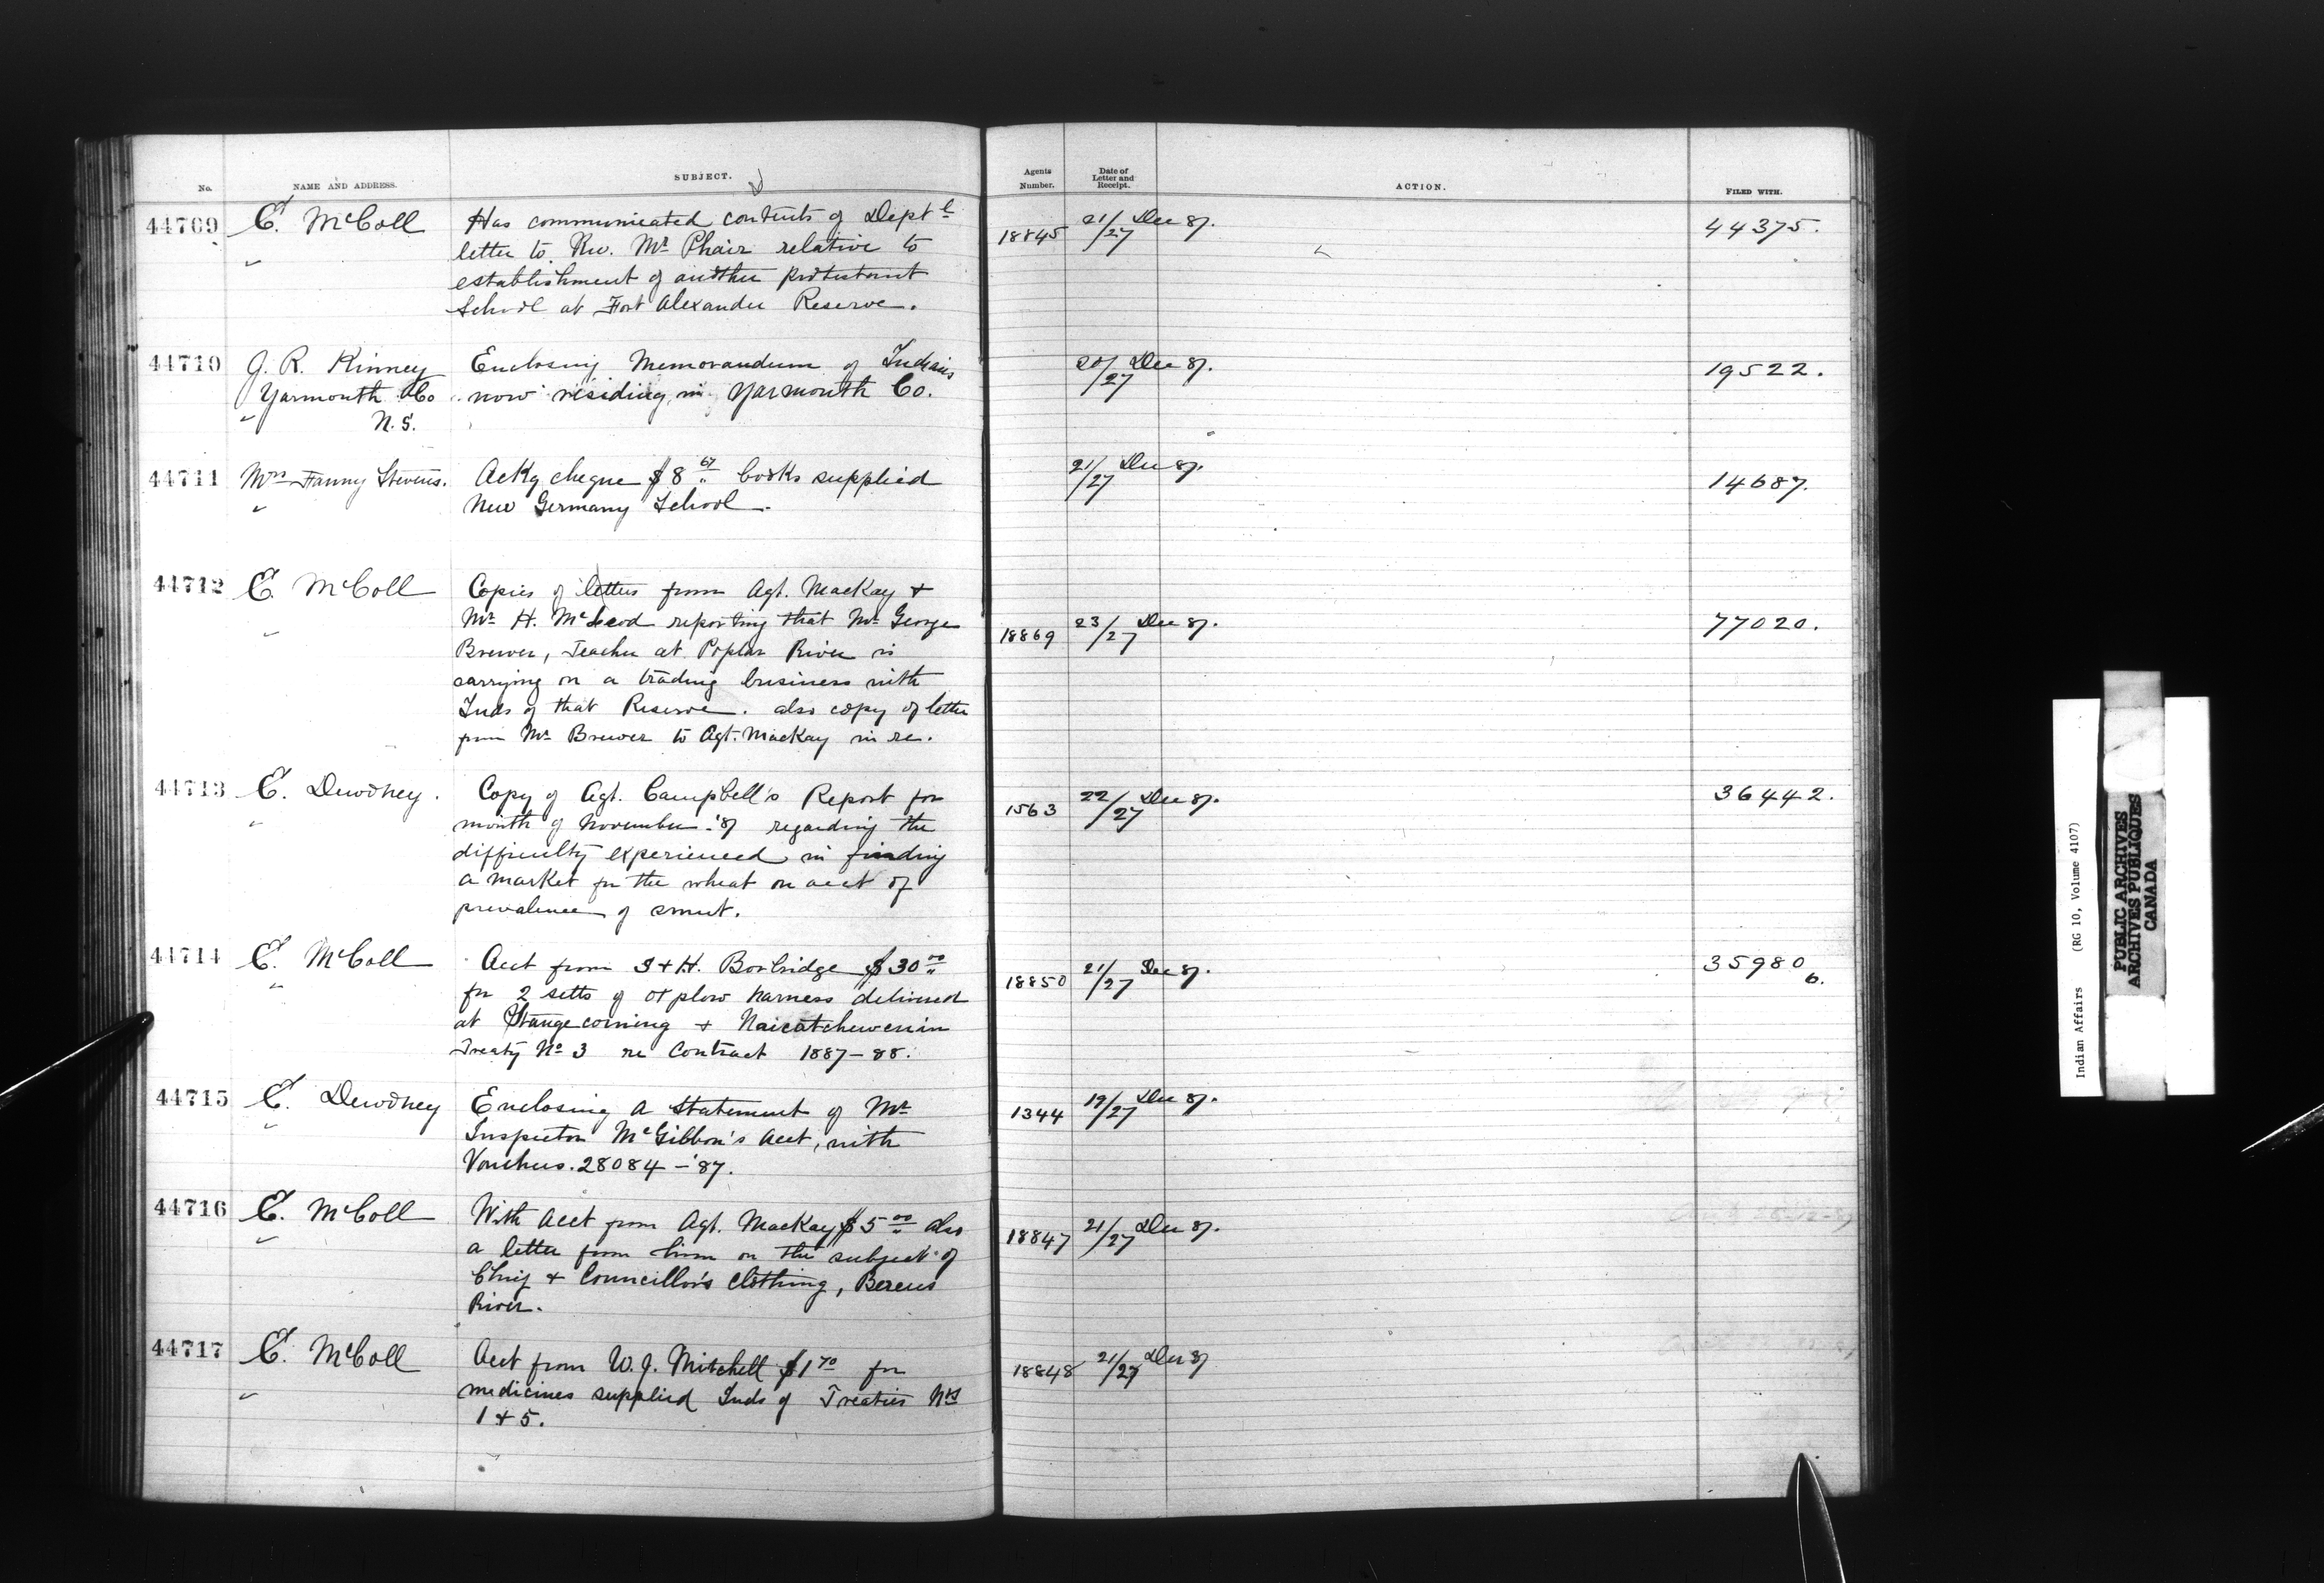 No. NAME AND ADDRESS. SUBJECT. Agents Number. Date of Letter and Receipt. ACTION. FILED WITH.
44709 E. McColl Has communicated contents of Deptl 18845 21/27 Dec 87. 44375.
letter to Rev. Mr Phair relative to
establishment of another protestant
School at Fort Alexander Reserve.
44710 J. R. Kinney Enclosing Memorandum of Indians 20/27 Dec 87. 19522.
Yarmouth Co now residing in Yarmouth Co.
N.S.
44711 Mrs Fanny Stevens. Ackg cheque $8.67 books supplied 21/27 Dec 87. 14687.
New Germany School.
44712 E. McColl Copies of letters from Agt. Mackay +
Mr H. McLeod reporting that Mr George 18869 23/27 Dec 87. 77020.
Brewer, Teacher at Poplar River is
carrying on a trading business with
Inds of that Reserve. also copy of letter
from Mr Brewer to Agt. Mackay in re.
44713 E. Dewdney. Copy of Agt. Campbell's Report for 1563 22/27 Dec 87. 36442.
month of November '87 regarding the
difficulty experienced in finding
a market for the wheat on acct of
prevalence of smut.
44714 E. McColl Acct from S + H. Borbridge $30.00 18850 21/27 Dec 87. 35980
for 2 setts of ox plow harness delivered 6.
at Stangecoming + Naicatchewenin
Treaty No 3 re Contract 1887-88.
44715 E. Dewdney Enclosing a statement of Mr 1344 19/27 Dec 87.
Inspector McGibbon's acct, with
Vouchers. 28084-'87.
44716 E. McColl With acct from Agt. Mackay $5.00 also 18847 21/27 Dec 87.
a letter from him on the subject of
Chief + Councillor's clothing, Berens
River.
44717 E. McColl Acct from W. J. Mitchell $1.70 for 18848 21/27 Dec 87
medicines supplied Inds of Treaties Nos
1 + 5.
Indian Affairs (RG 10, Volume 4107)
PUBLIC ARCHIVES
ARCHIVES PUBLIQUES
CANADA